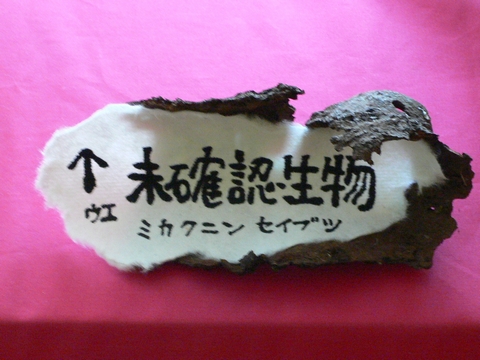 ↑ 未確認生物
ウエ ミカクニン セイブツ